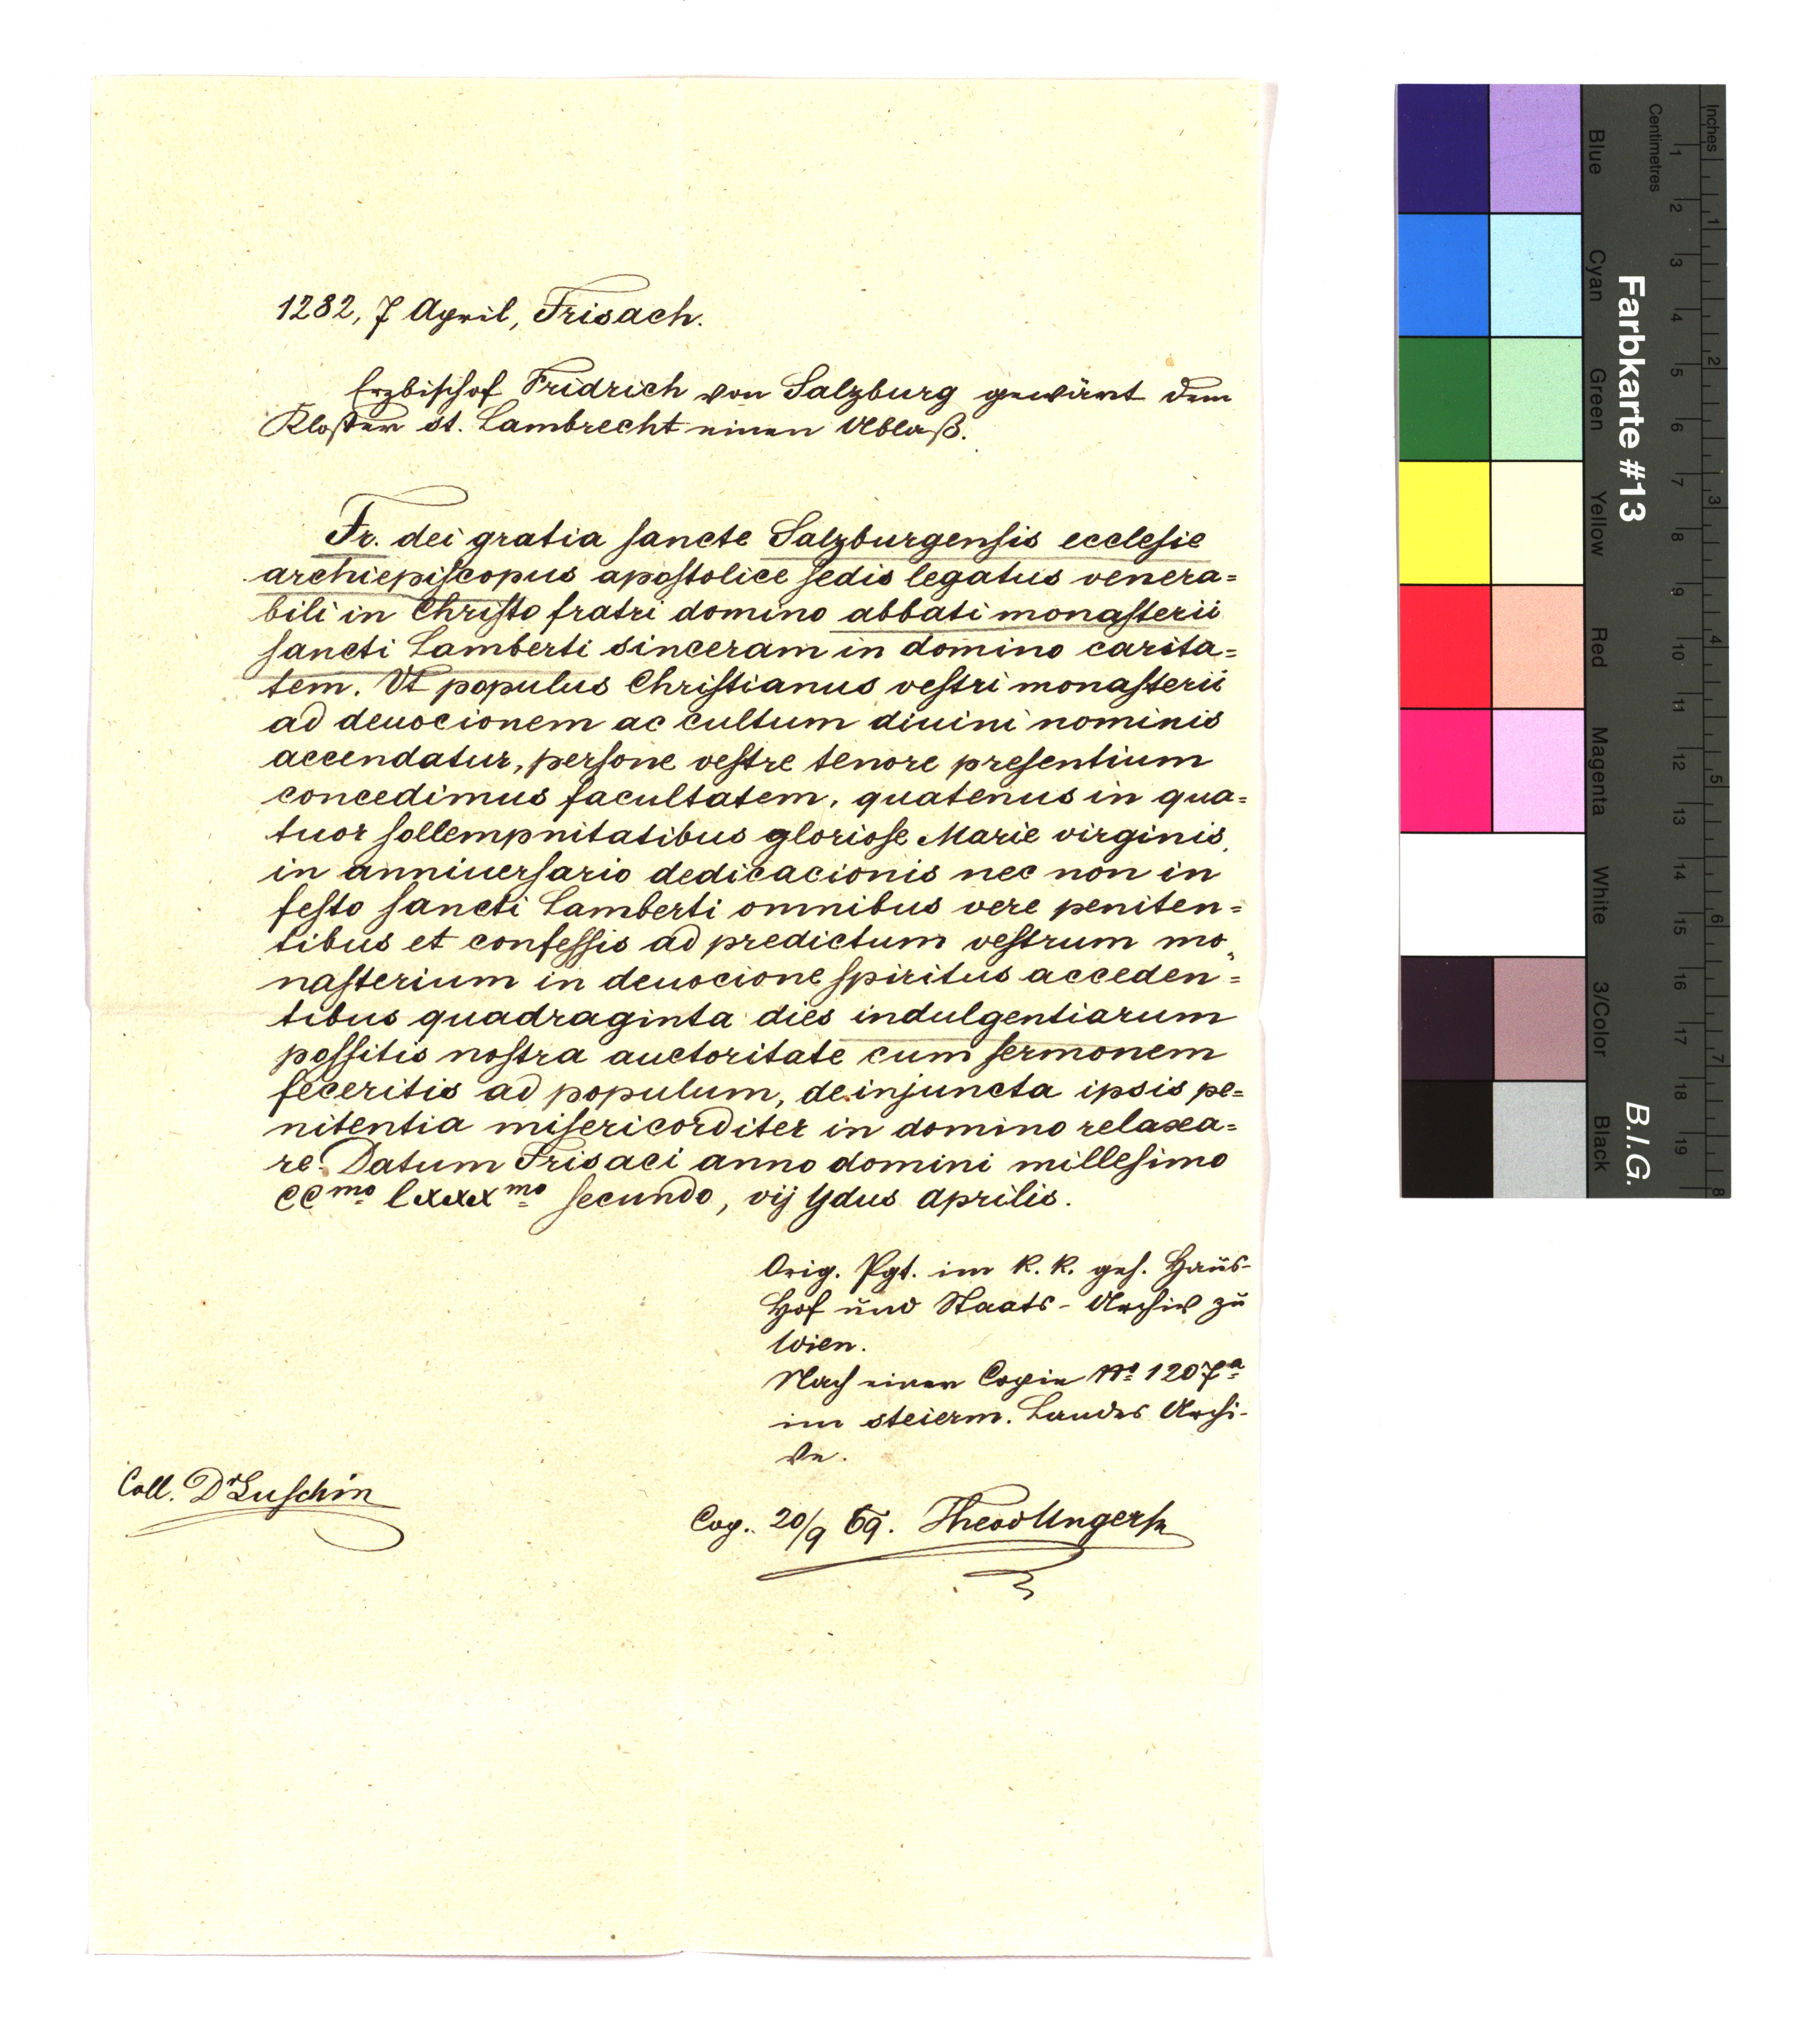 1282, 7 April, Frisach.
Erzbischof Fridrich von Salzburg gewärt dem
Kloster St. Lambrecht einen Ablaß.
Fr. dei gratia sancte Salzburgensis ecclesie
archiepiscopus apostolice sedis legatus venera=
bili in Christo fratri domino abbati monasterii
sancti Lamberti sinceram in domino carita=
tem. Ut populus Christianus vestri monasterii
ad deuocionem ac cultum diuini nominis
accendatur, persone vestre tenore presentium
concedimus facultatem, quatenus in qua=
tuor sollempnitatibus gloriose Marie virginis,
in anniuersario dedicacionis nec non in
festo sancti Lamberti omnibus vere peniten=
tibus et confessis ad predictum vestrum mo=
nasterium in deuocione spiritus acceden=
tibus quadraginta dies indulgentiarum
possitis nostra auctoritate cum sermonem
feceritis ad populum, de injuncta ipsis pe=
nitentia misericorditer in domino relaxa=
re. Datum Frisaci anno domini millesimo
CCmo lxxxmo secundo, vij Ydus Aprilis.
Orig. Pgt. im K. K. geh. Haus-
Hof und Staats-Archiv zu
Wien.
Nach einer Copie No 1207a
im steierm. Landes Archi-
ve.
Coll. Dr Luschin
Cop. 20/9 69. Theod Unger
Farbkarte #13
B.I.G.
Blue
Cyan
Green
Yellow
Red
Magenta
White
3/Color
Black
Centimetres
1 2 3 4 5 6 7 8 9 10 11 12 13 14 15 16 17 18 19
Inches
1 2 3 4 5 6 7 8